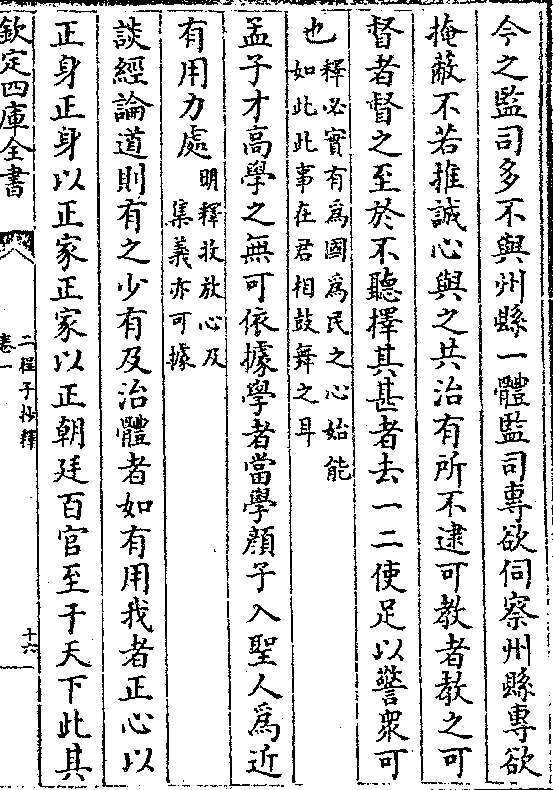 今之監司多不與州縣一體監司專欲伺察州縣專欲
掩蔽不若推誠心與之共治有所不逮可教者教之可
督者督之至於不聽擇其甚者去一二使足以警衆可
也釋必實有爲國爲民之心始能
如此此事在君相鼓舞之耳
孟子才高學之無可依據學者當學顏子入聖人爲近
有用力處明釋收放心及
集義亦可據
談經論道則有之少有及治體者如有用我者正心以
正身正身以正家正家以正朝廷百官至于天下此其
欽定四庫全書
二程子抄釋
卷一
十六